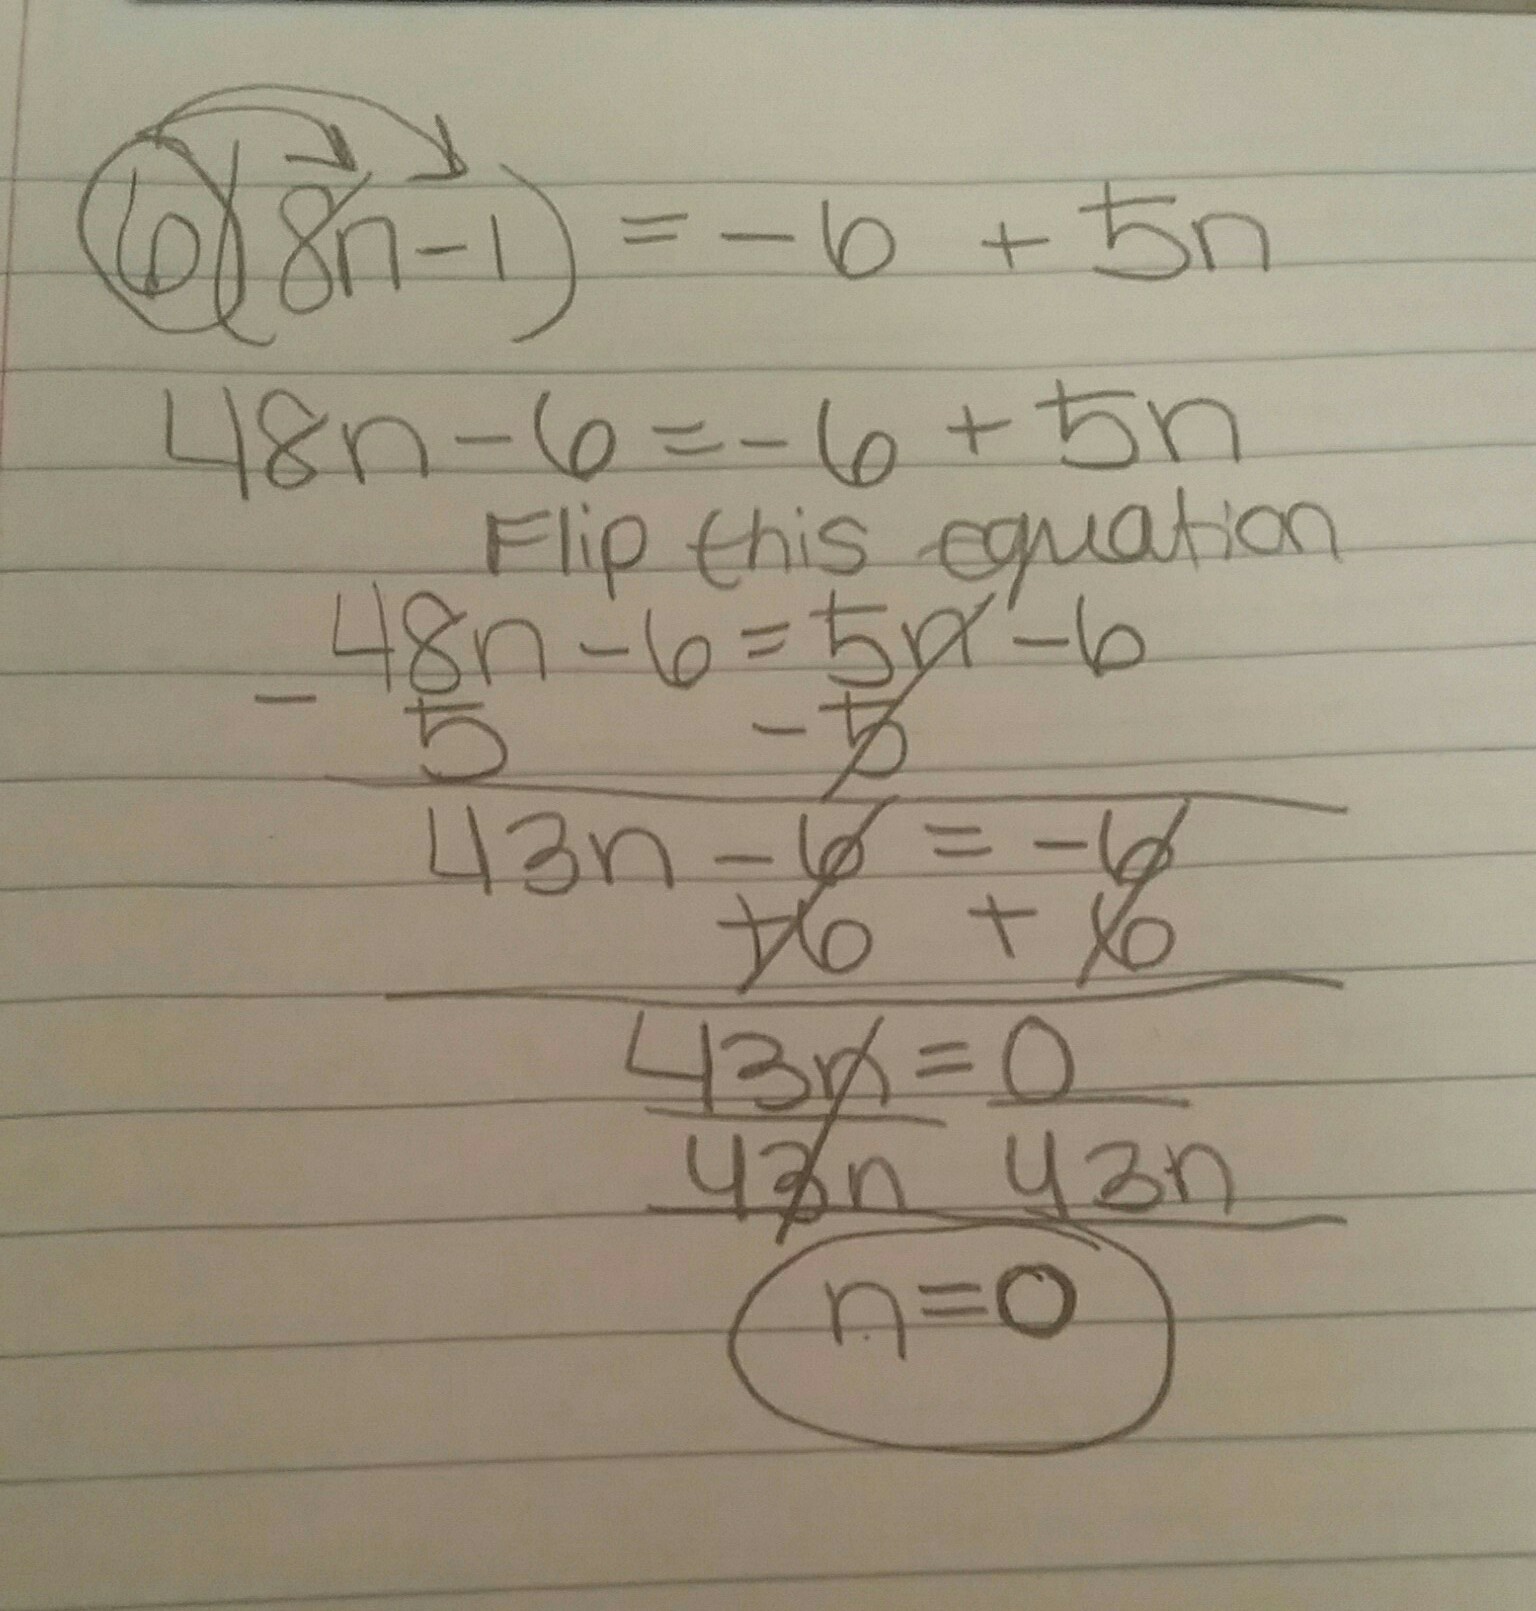 6(8n-1) = -6 + 5n
48n - 6 = -6 + 5n
Flip this equation
48n - 6 = 5n - 6
- 5 - 5
43n - 6 = -6
+6 + 6
43n = 0
43n 43n
n=0